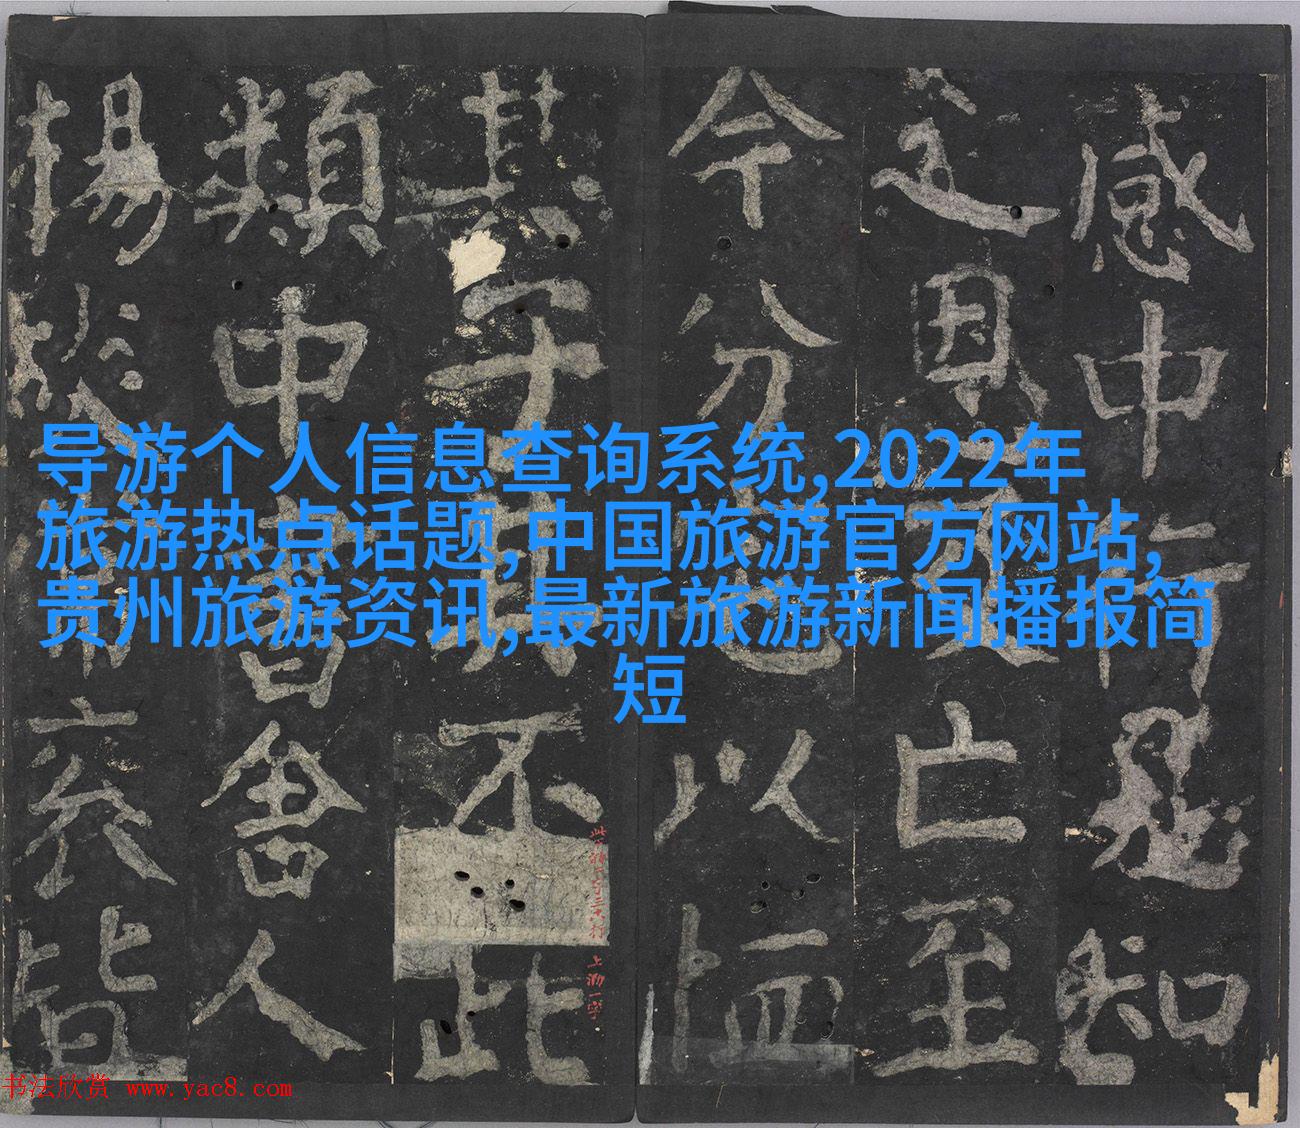 导游个人信息查询系统,2022年
旅游热点话题,中国旅游官方网站,
贵州旅游资讯,最新旅游新闻播报简
短
感中行愚知
之恩亡至
今分以恤
其子不此
類中書舍人
揚皆
书法欣赏 www.yac8.com